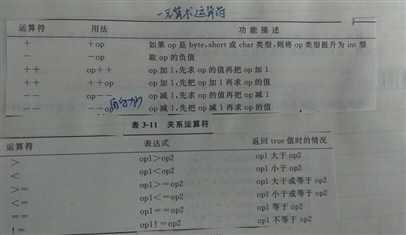 一元算术运算符
运算符 用法 功能描述
+ +op 如果 op 是 byte,short 或 char 类型,则将 op 类型提升为 int 型
- -op 取 op 的负值
++ op++ op 加 1,先求 op 的值再把 op 加 1
++ ++op op 加 1,先把 op 加 1 再求 op 的值
-- op-- op 减 1,先求 op 的值再把 op 减 1
-- --op op 减 1,先把 op 减 1 再求 op 的值
表 3-11 关系运算符
运算符 表达式 返回 true 值时的情况
> op1>op2 op1 大于 op2
< op1<op2 op1 小于 op2
>= op1>=op2 op1 大于或等于 op2
<= op1<=op2 op1 小于或等于 op2
== op1==op2 op1 等于 op2
!= op1!=op2 op1 不等于 op2